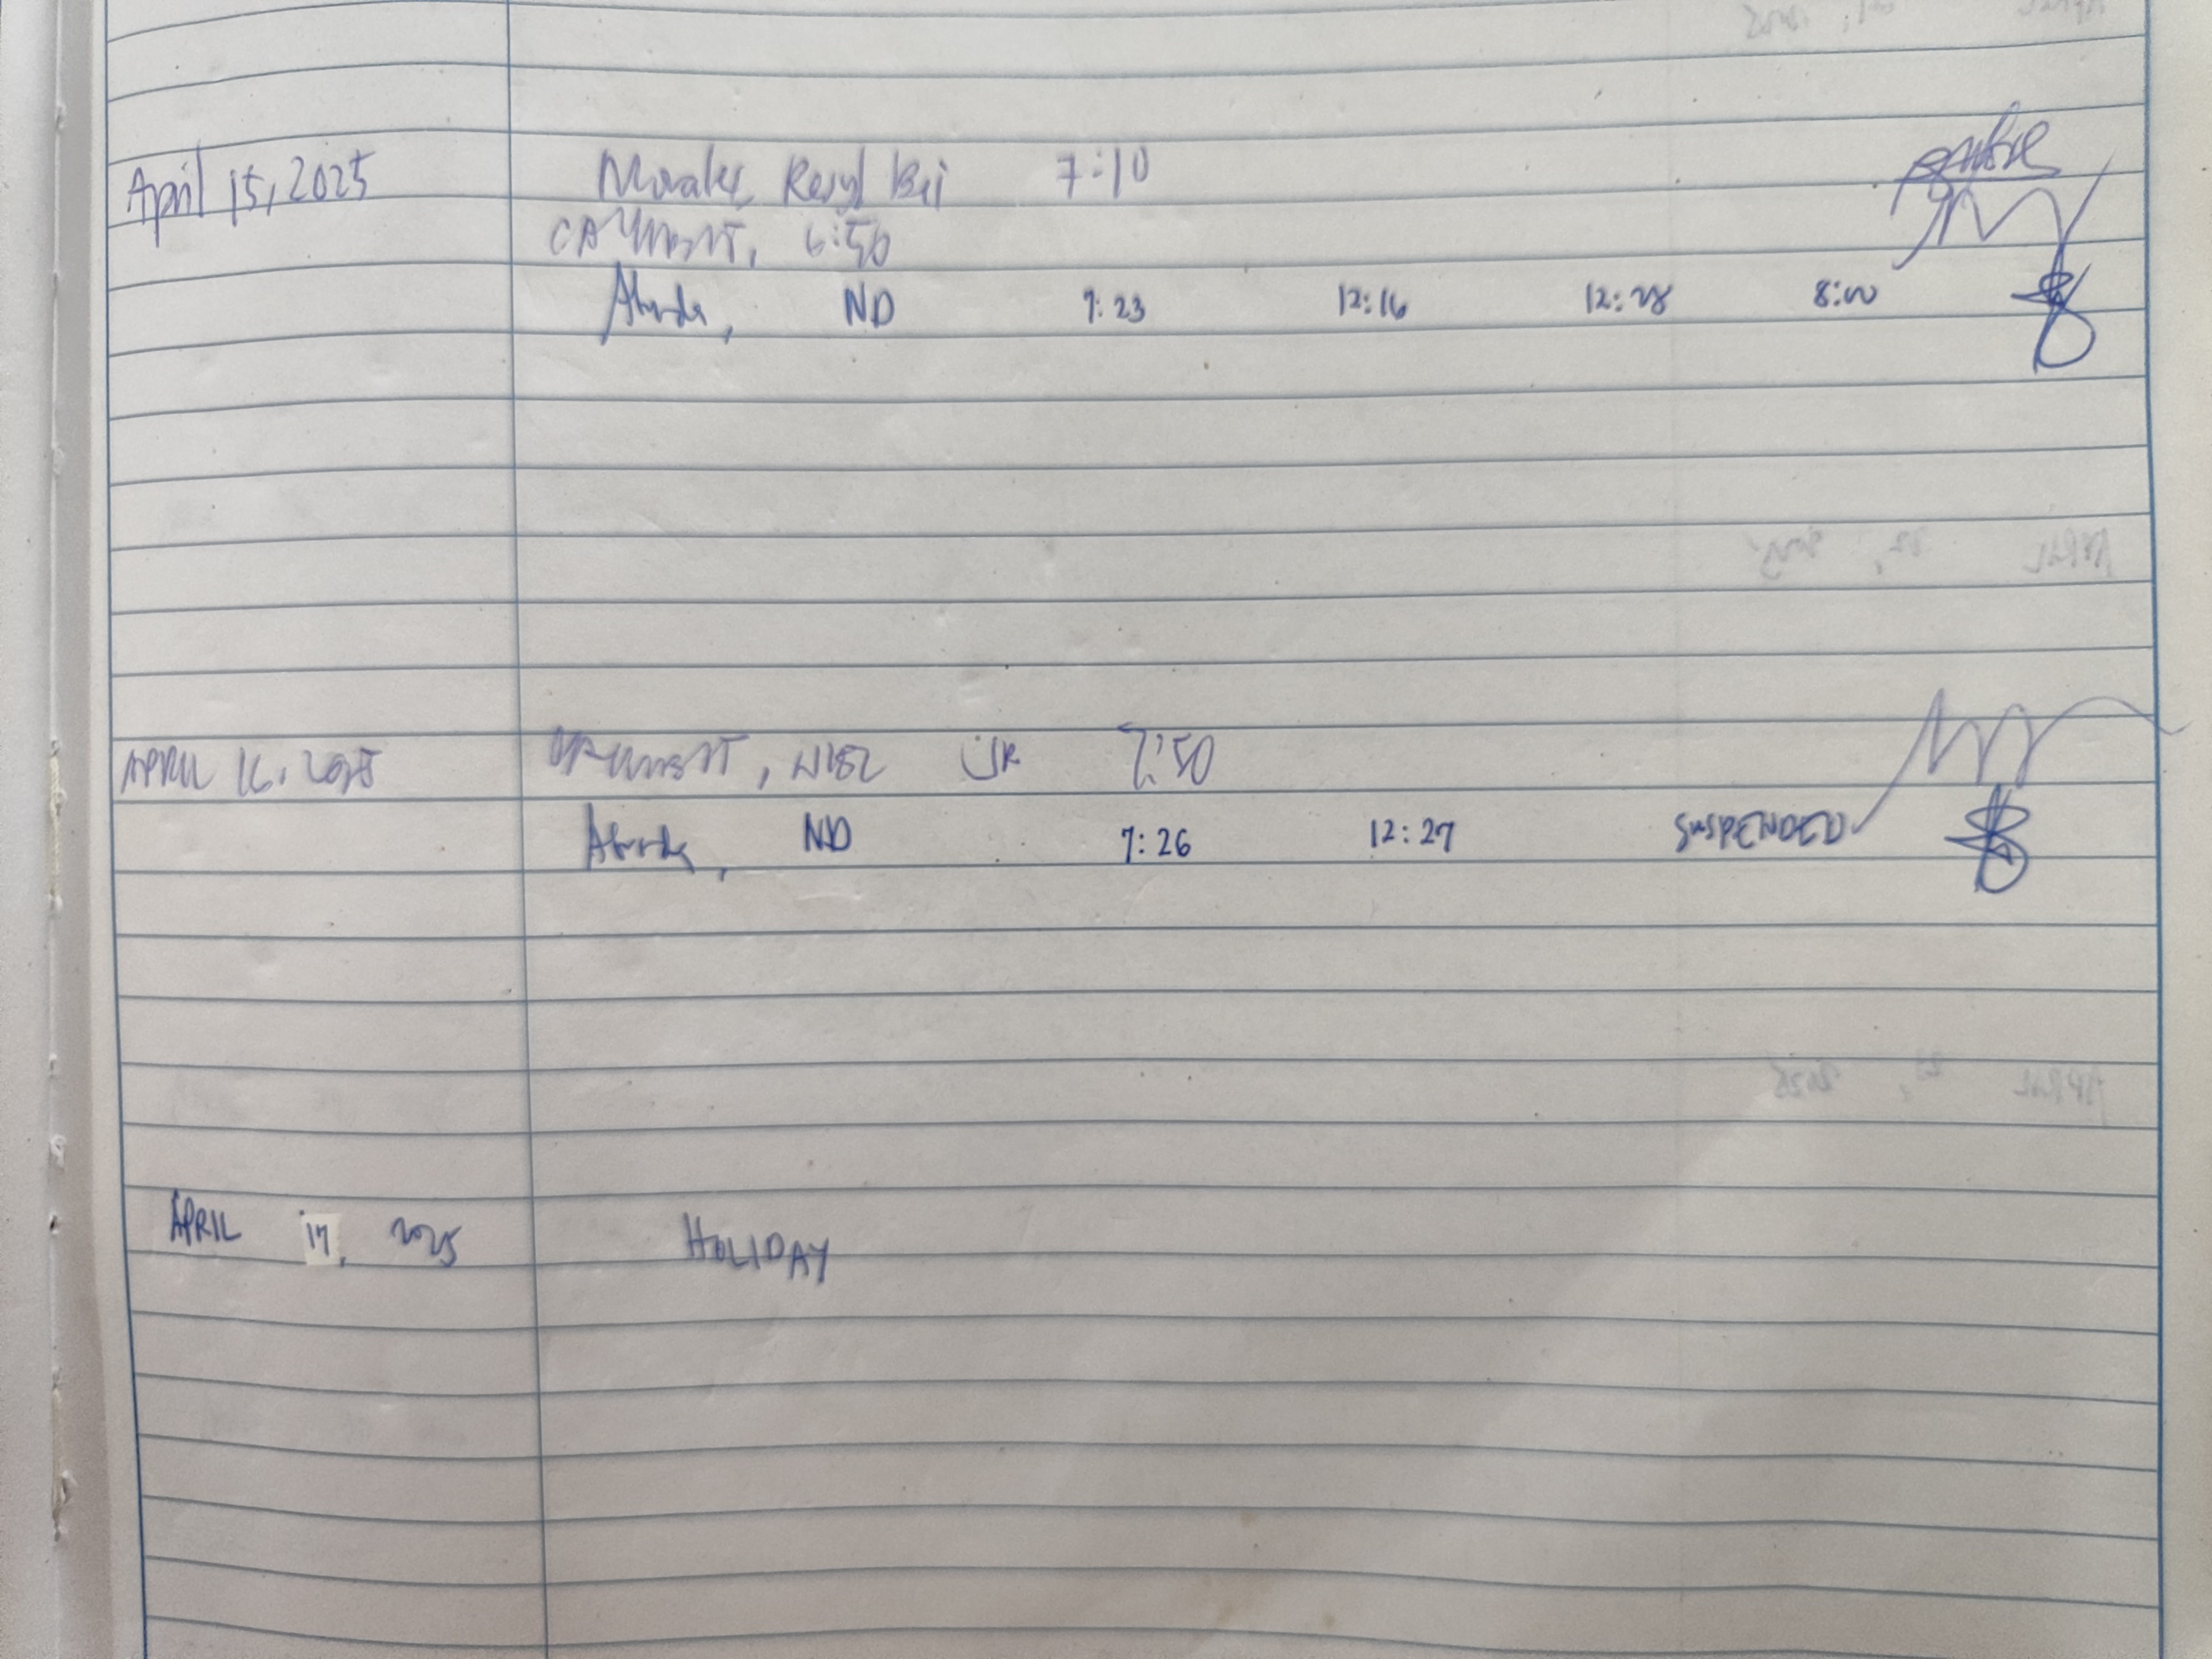 April 15, 2025 Morales, Reryl Bei 7:10
6:50
ND 7:23 12:16 12:28 8:00
APRIL 16, 2025 JR 7:50
ND 7:26 12:27 SUSPENDED
APRIL 17, 2025 HOLIDAY